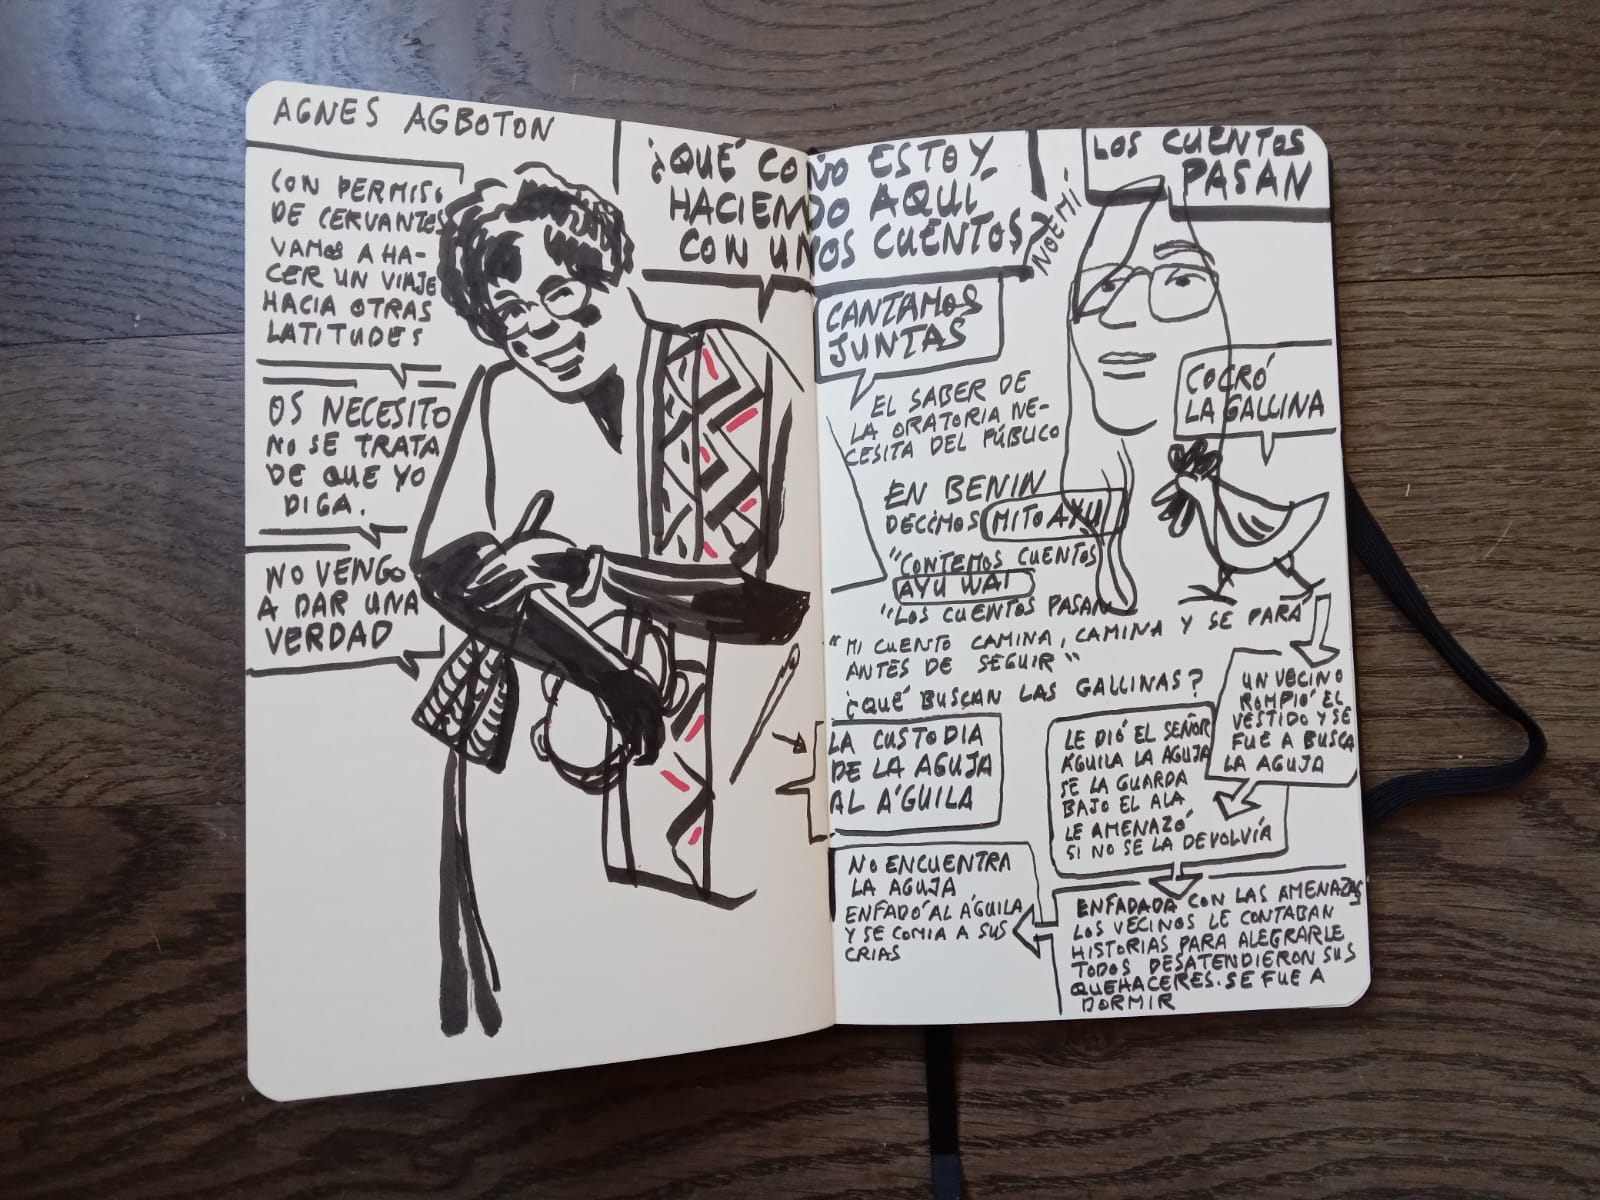 AGNES AGBOTON
CON PERMISO
DE CERVANTES
VAMOS A HA-
CER UN VIAJE
HACIA OTRAS
LATITUDES
OS NECESITO
NO SE TRATA
DE QUE YO
DIGA.
NO VENGO
A DAR UNA
VERDAD
¿QUÉ COÑO ESTOY
HACIENDO AQUÍ
CON UNOS CUENTOS?
NOEMÍ
LOS CUENTOS
PASAN
CANTAMOS
JUNTAS
EL SABER DE
LA ORATORIA NE-
CESITA DEL PÚBLICO
COCRÓ
LA GALLINA
EN BENIN
DECIMOS MITO AXU
"CONTEMOS CUENTOS
AYU WAI
"LOS CUENTOS PASAN
"MI CUENTO CAMINA, CAMINA Y SE PARA
ANTES DE SEGUIR"
¿QUÉ BUSCAN LAS GALLINAS?
LA CUSTODIA
DE LA AGUJA
AL ÁGUILA
UN VECINO
ROMPIÓ EL
VESTIDO Y SE
FUE A BUSCA
LA AGUJA
LE DIÓ EL SEÑOR
ÁGUILA LA AGUJA
SE LA GUARDA
BAJO EL ALA
LE AMENAZÓ
SI NO SE LA DEVOLVÍA
ENFADADA CON LAS AMENAZAS
LOS VECINOS LE CONTABAN
HISTORIAS PARA ALEGRARLE
TODOS DESATENDIERON SUS
QUEHACERES. SE FUE A
DORMIR
NO ENCUENTRA
LA AGUJA
ENFADÓ AL ÁGUILA
Y SE COMIA A SUS
CRIAS